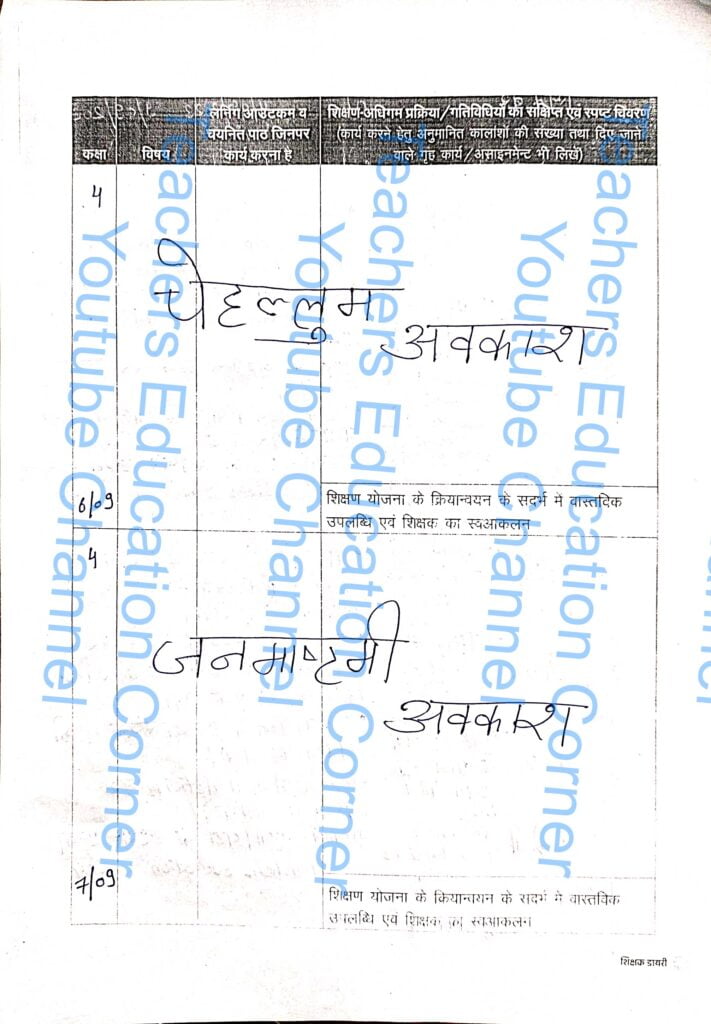 कक्षा
विषय
लर्निंग आउटकम व
चयनित पाठ जिनपर
कार्य करना है
शिक्षण-अधिगम प्रक्रिया/गतिविधियों का संक्षिप्त एवं स्पष्ट विवरण
(कार्य करने हेतु अनुमानित कालांशों की संख्या तथा दिए जाने
वाले गृह कार्य/असाइनमेंट भी लिखें)
4
चेहल्लुम
अवकाश
6/09
शिक्षण योजना के क्रियान्वयन के सदर्भ मे वास्तविक
उपलब्धि एवं शिक्षक का स्वआकलन
4
जनमाष्टमी
अवकाश
7/09
शिक्षण योजना के कियान्वयन के सदर्भ मे वास्तविक
उपलब्धि एवं शिक्षक का स्वआकलन
शिक्षक डायरी
Teachers Education Corner
Youtube Channel
Teachers Education Corner
Youtube Channel
Teachers Education Corner
Youtube Channel